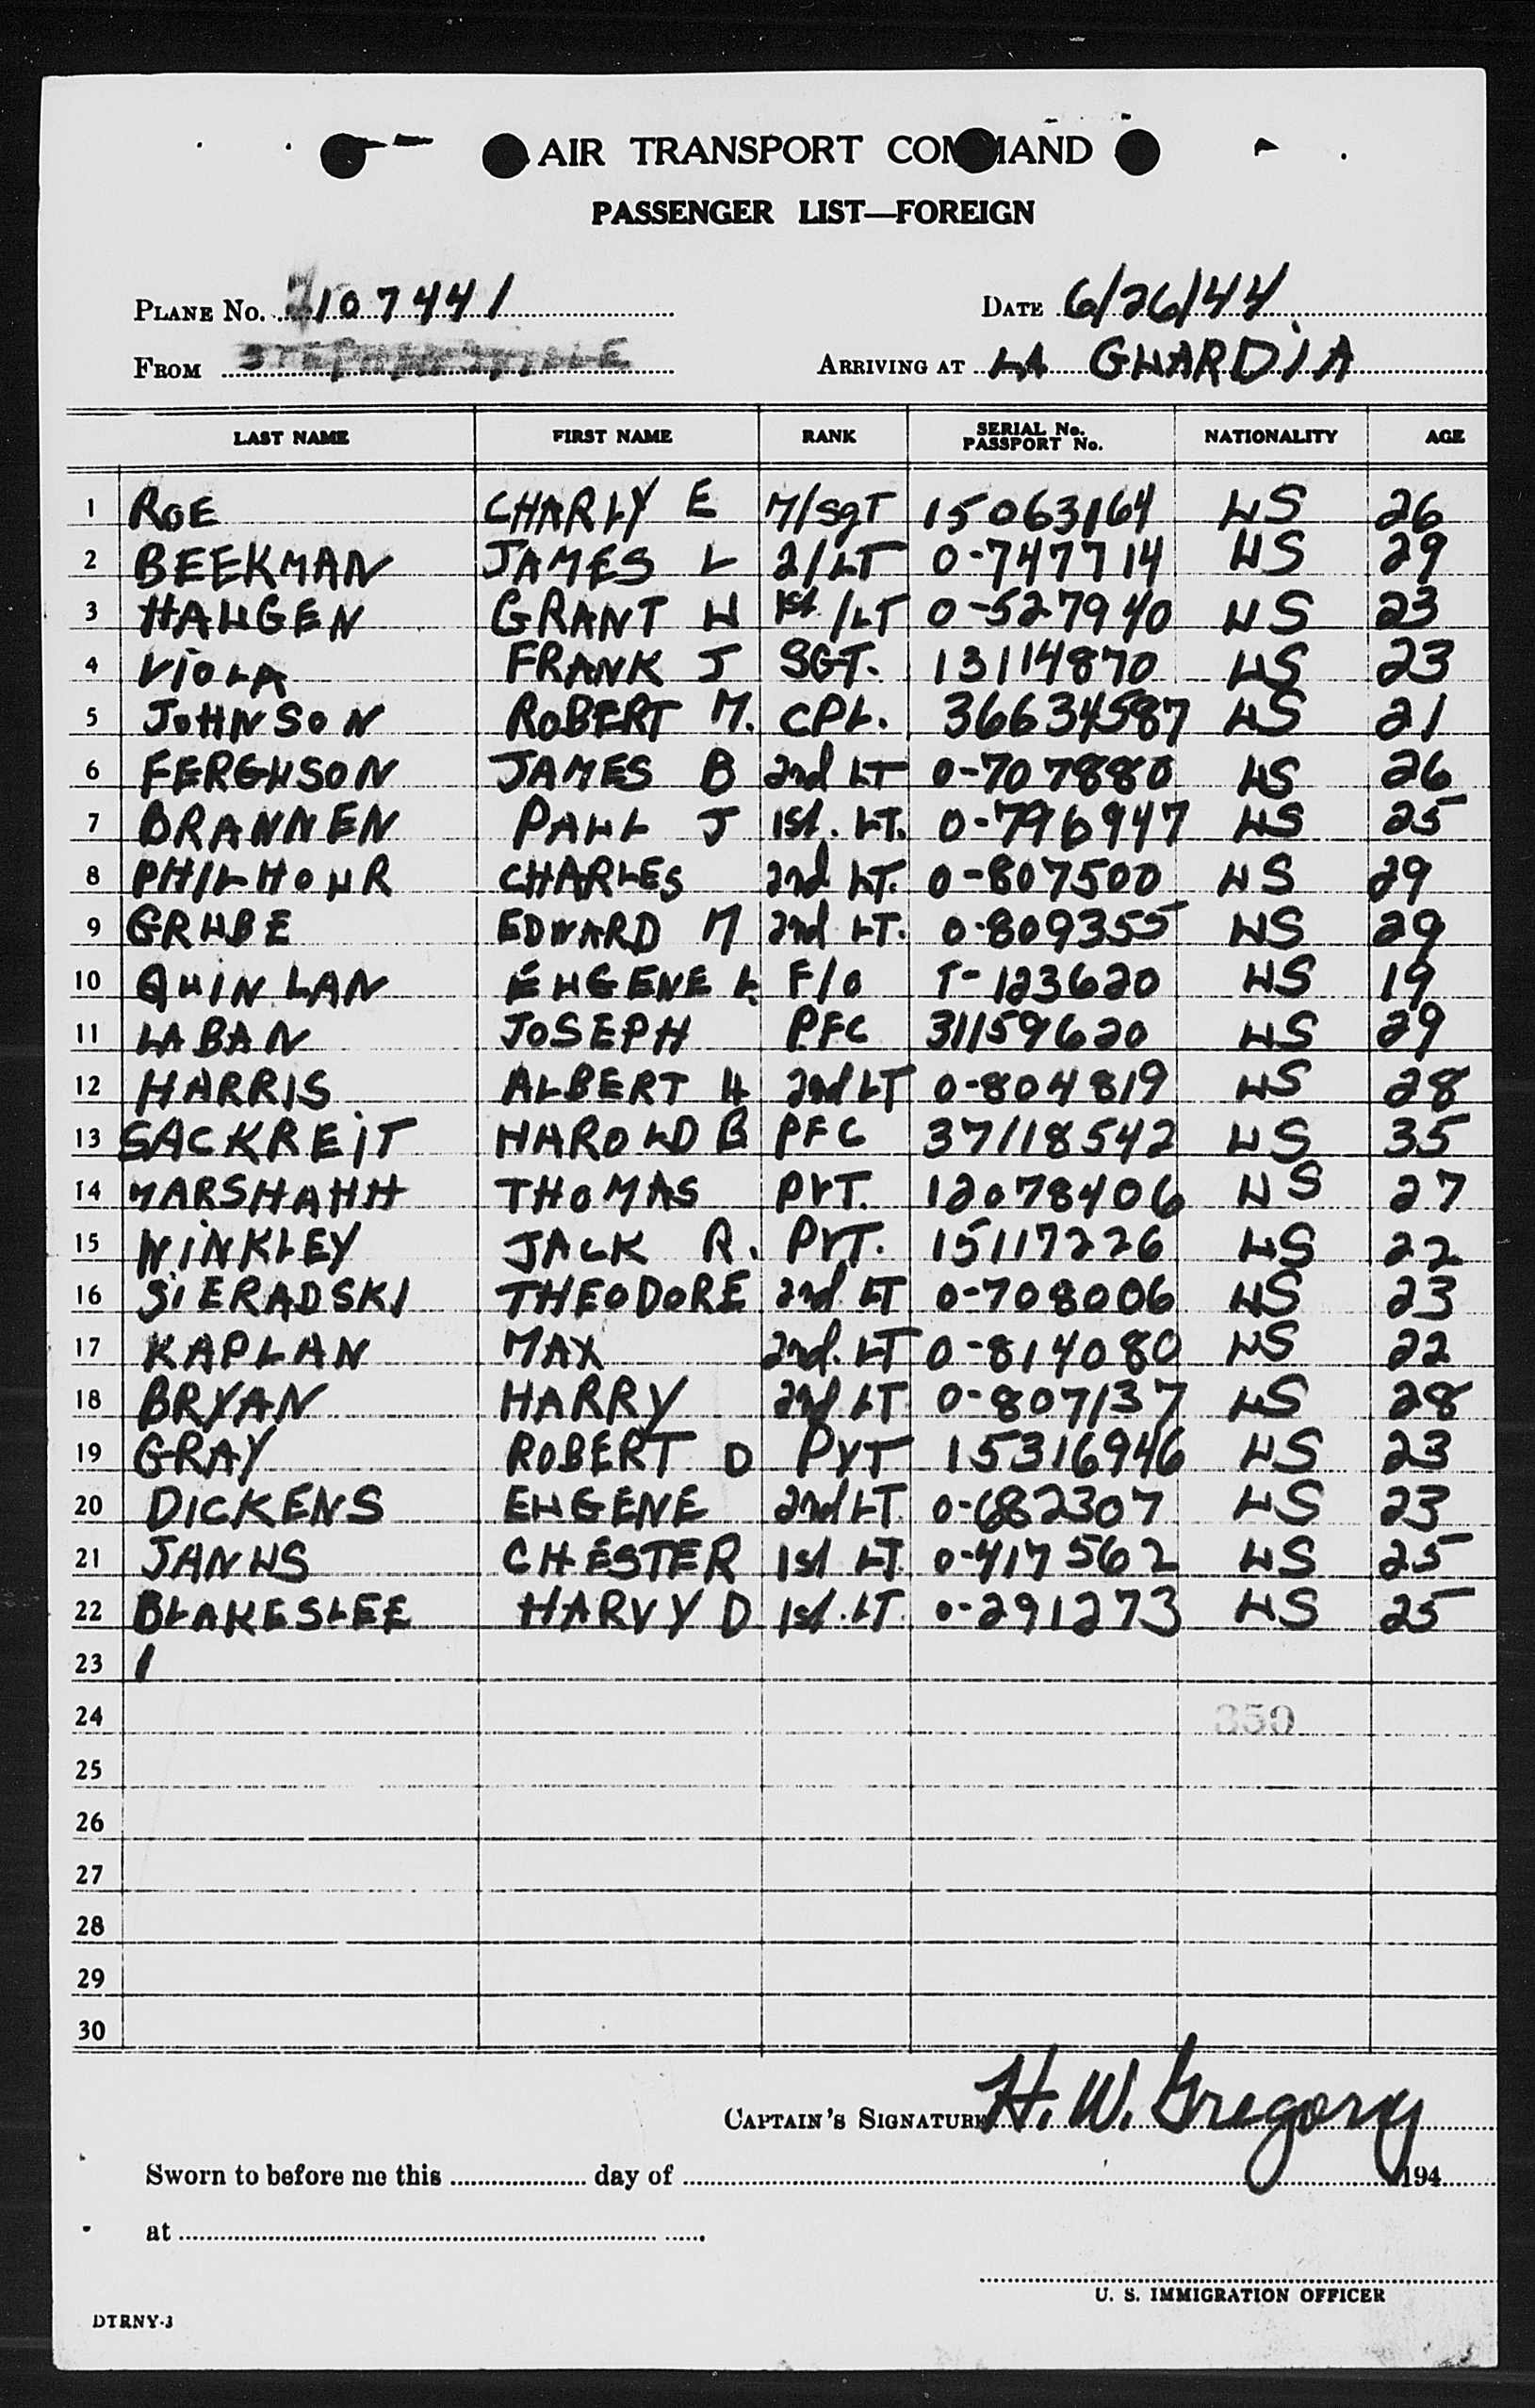 AIR TRANSPORT COMMAND
PASSENGER LIST—FOREIGN
PLANE No. 2107441 DATE 6/26/44
FROM STEPHENVILLE ARRIVING AT LA GUARDIA
LAST NAME FIRST NAME RANK SERIAL No. PASSPORT No. NATIONALITY AGE
1 ROE CHARLY E M/SgT 15063164 US 26
2 BEEKMAN JAMES L 2/LT 0-747714 US 29
3 HAUGEN GRANT W 1st/LT 0-527940 US 23
4 VIOLA FRANK J SGT. 13114870 US 23
5 JOHNSON ROBERT M. CPL. 36634587 US 21
6 FERGUSON JAMES B 2nd LT 0-707880 US 26
7 BRANNEN PAUL J 1st. LT. 0-796947 US 25
8 PHILHOUR CHARLES 2nd LT. 0-807500 US 29
9 GRUBE EDWARD M 2nd LT. 0-809355 US 29
10 QUINLAN EUGENE L. F/O T-123620 US 19
11 LABAN JOSEPH PFC 31159620 US 29
12 HARRIS ALBERT H 2nd LT 0-804819 US 28
13 SACKREIT HAROLD B PFC 37118542 US 35
14 THOMAS PVT. 12078406 US 27
15 WINKLEY JACK R. PVT. 15117226 US 22
16 SIERADSKI THEODORE 2nd LT 0-708006 US 23
17 KAPLAN MAX 2nd. LT 0-814080 US 22
18 BRYAN HARRY 2nd LT 0-807137 US 28
19 GRAY ROBERT D PVT 15316946 US 23
20 DICKENS EUGENE 2nd LT 0-682307 US 23
21 JANUS CHESTER 1st LT. 0-417562 US 25
22 BLAKESLEE HARVY D 1st. LT. 0-291273 US 25
23
24 350
25
26
27
28
29
30
CAPTAIN'S SIGNATURE H. W. Gregory
Sworn to before me this day of 194
at
U. S. IMMIGRATION OFFICER
DTRNY-3